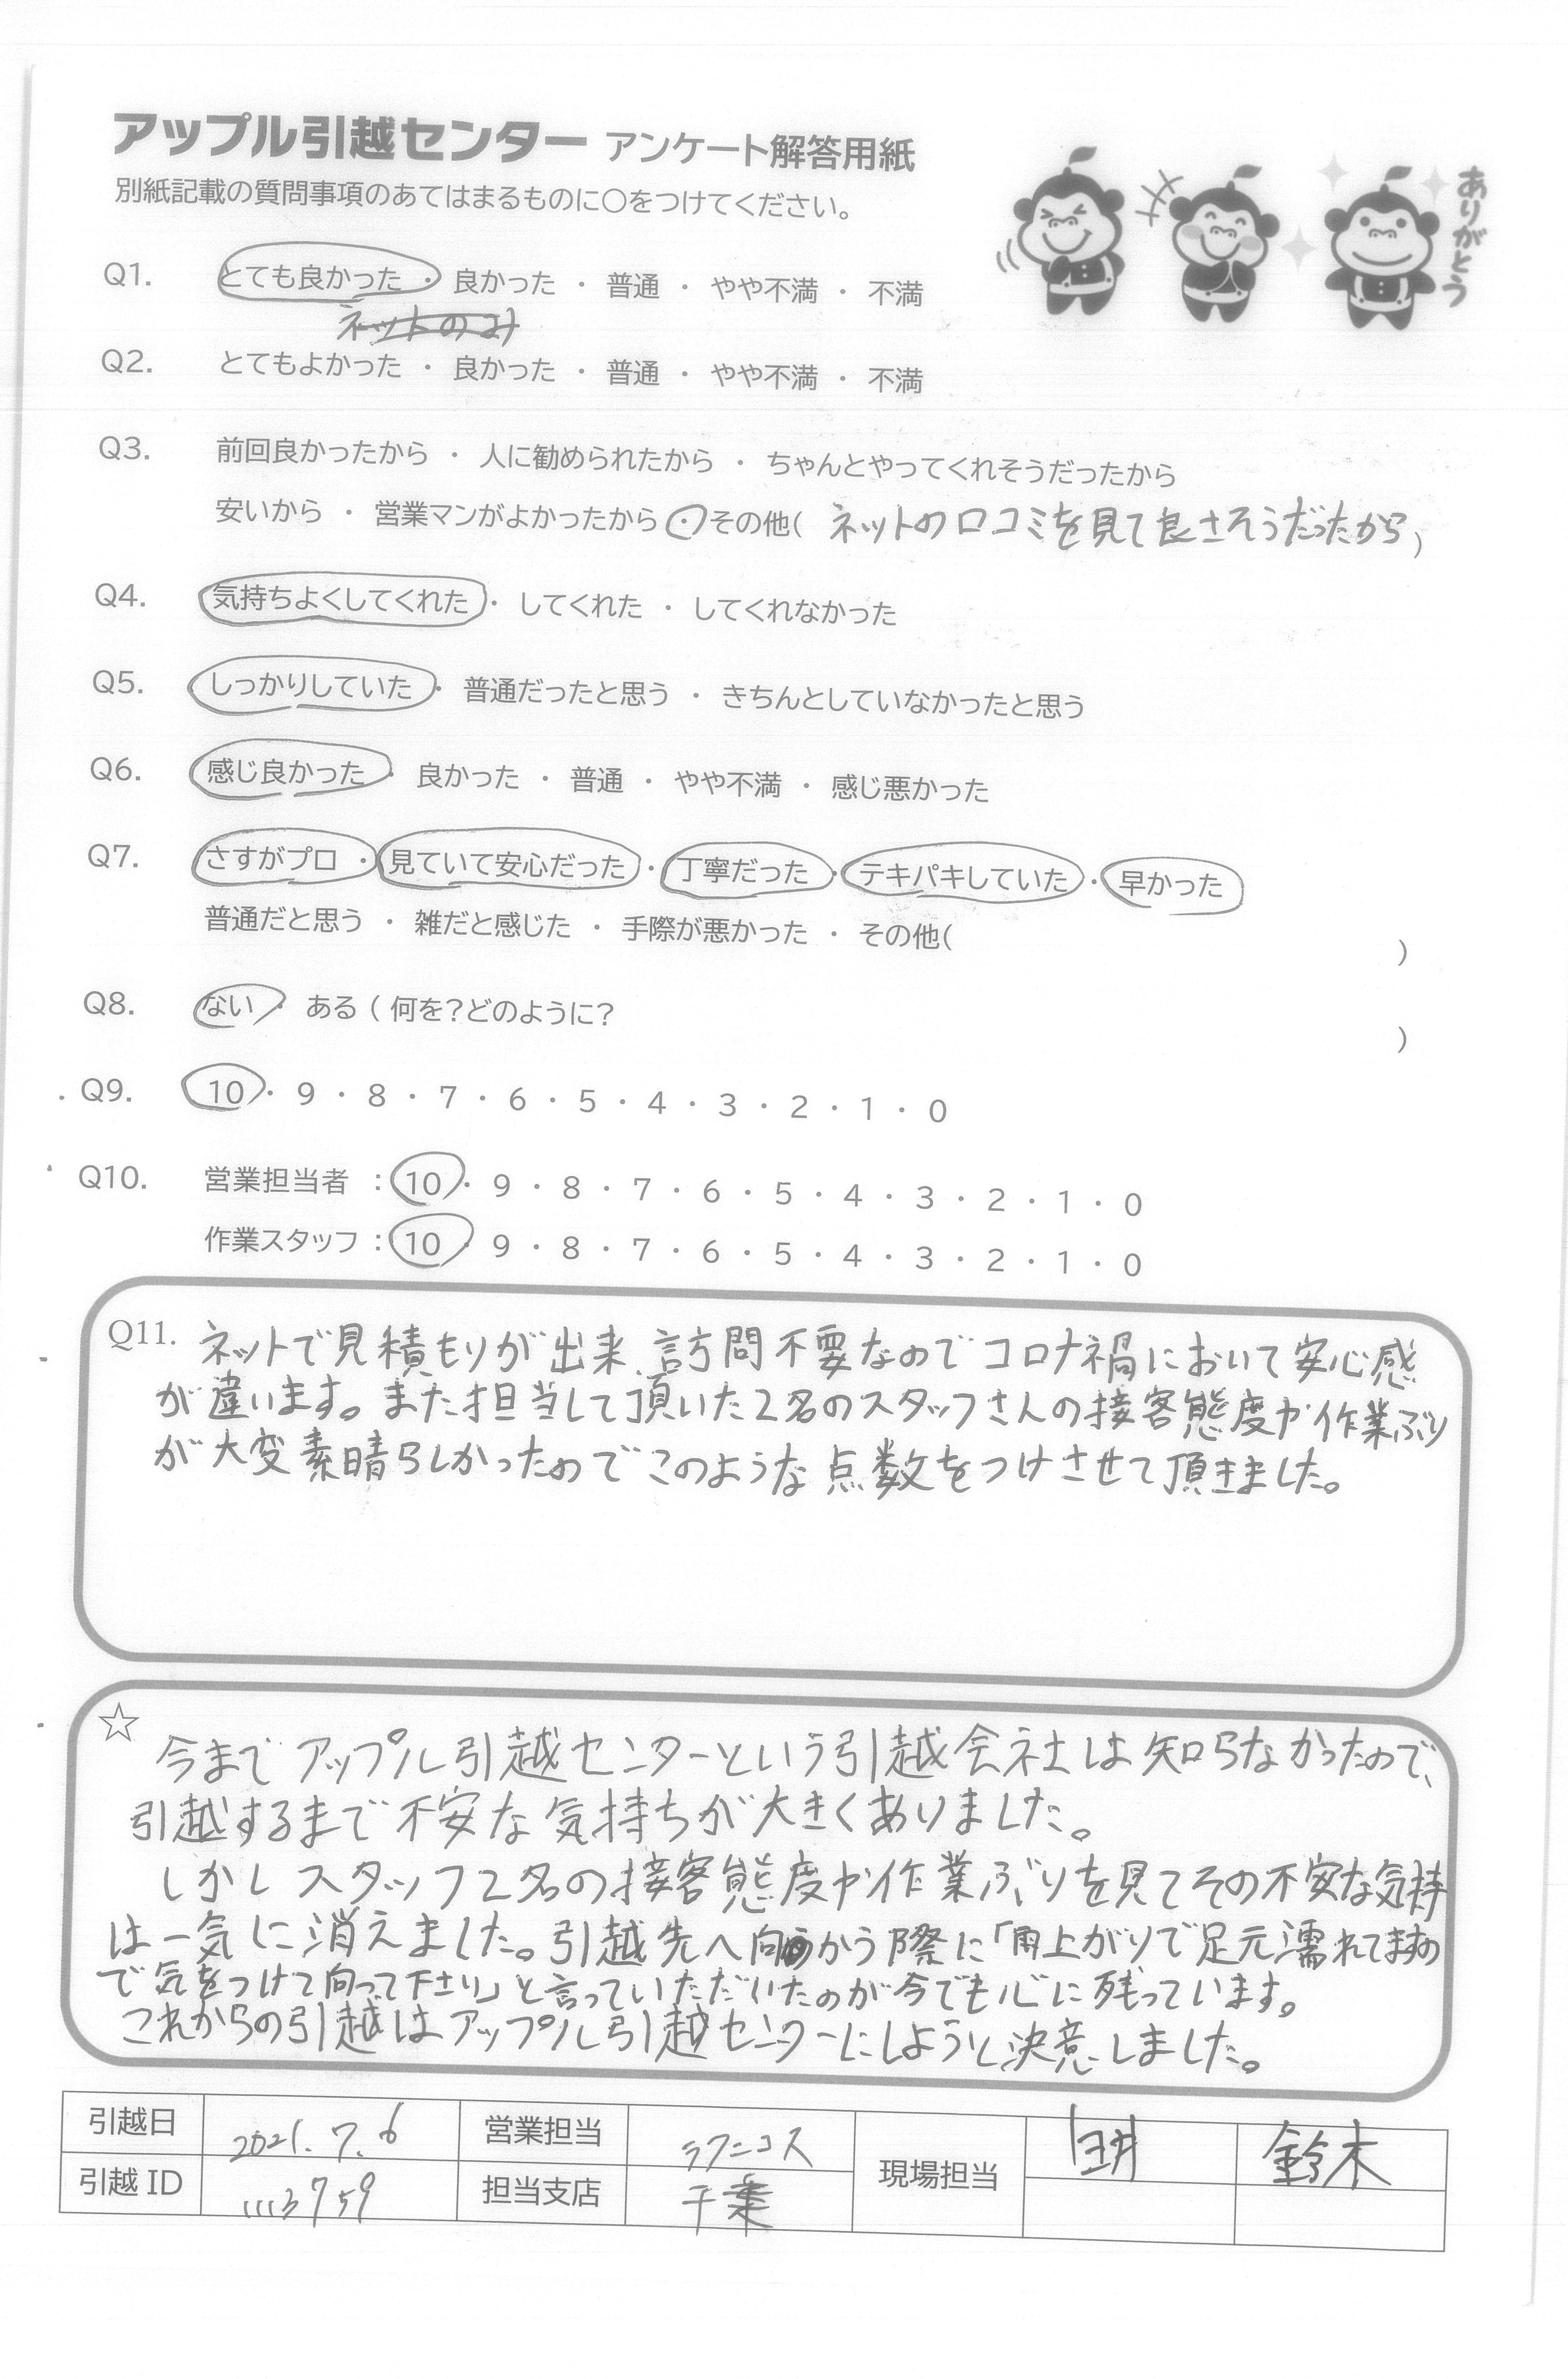 アップル引越センター アンケート解答用紙
別紙記載の質問事項のあてはまるものに○をつけてください。
ありがとう
Q1. とても良かった ・ 良かった ・ 普通 ・ やや不満 ・ 不満
ネットのみ
Q2. とてもよかった ・ 良かった ・ 普通 ・ やや不満 ・ 不満
Q3. 前回良かったから ・ 人に勧められたから ・ ちゃんとやってくれそうだったから
安いから ・ 営業マンがよかったから ・ その他( ネットの口コミを見て良さそうだったから )
Q4. 気持ちよくしてくれた ・ してくれた ・ してくれなかった
Q5. しっかりしていた ・ 普通だったと思う ・ きちんとしていなかったと思う
Q6. 感じ良かった ・ 良かった ・ 普通 ・ やや不満 ・ 感じ悪かった
Q7. さすがプロ ・ 見ていて安心だった ・ 丁寧だった ・ テキパキしていた ・ 早かった
普通だと思う ・ 雑だと感じた ・ 手際が悪かった ・ その他( )
Q8. ない ・ ある ( 何を?どのように? )
Q9. 10 ・ 9 ・ 8 ・ 7 ・ 6 ・ 5 ・ 4 ・ 3 ・ 2 ・ 1 ・ 0
Q10. 営業担当者 : 10 ・ 9 ・ 8 ・ 7 ・ 6 ・ 5 ・ 4 ・ 3 ・ 2 ・ 1 ・ 0
作業スタッフ : 10 ・ 9 ・ 8 ・ 7 ・ 6 ・ 5 ・ 4 ・ 3 ・ 2 ・ 1 ・ 0
Q11. ネットで見積もりが出来、訪問不要なのでコロナ禍において安心感
が違います。また担当して頂いた2名のスタッフさんの接客態度や作業ぶり
が大変素晴らしかったのでこのような点数をつけさせて頂きました。
☆
今までアップル引越センターという引越会社は知らなかったので、
引越するまで不安な気持ちが大きくありました。
しかしスタッフ2名の接客態度や作業ぶりを見てその不安な気持
は一気に消えました。引越先へ向かう際に「雨上がりで足元濡れてますの
で気をつけて向って下さい」と言っていただいたのが今でも心に残っています。
これからの引越はアップル引越センターにしようと決意しました。
引越日 2021.7.6 営業担当 ラクニコス 現場担当 鈴木
引越ID 1113759 担当支店 千葉